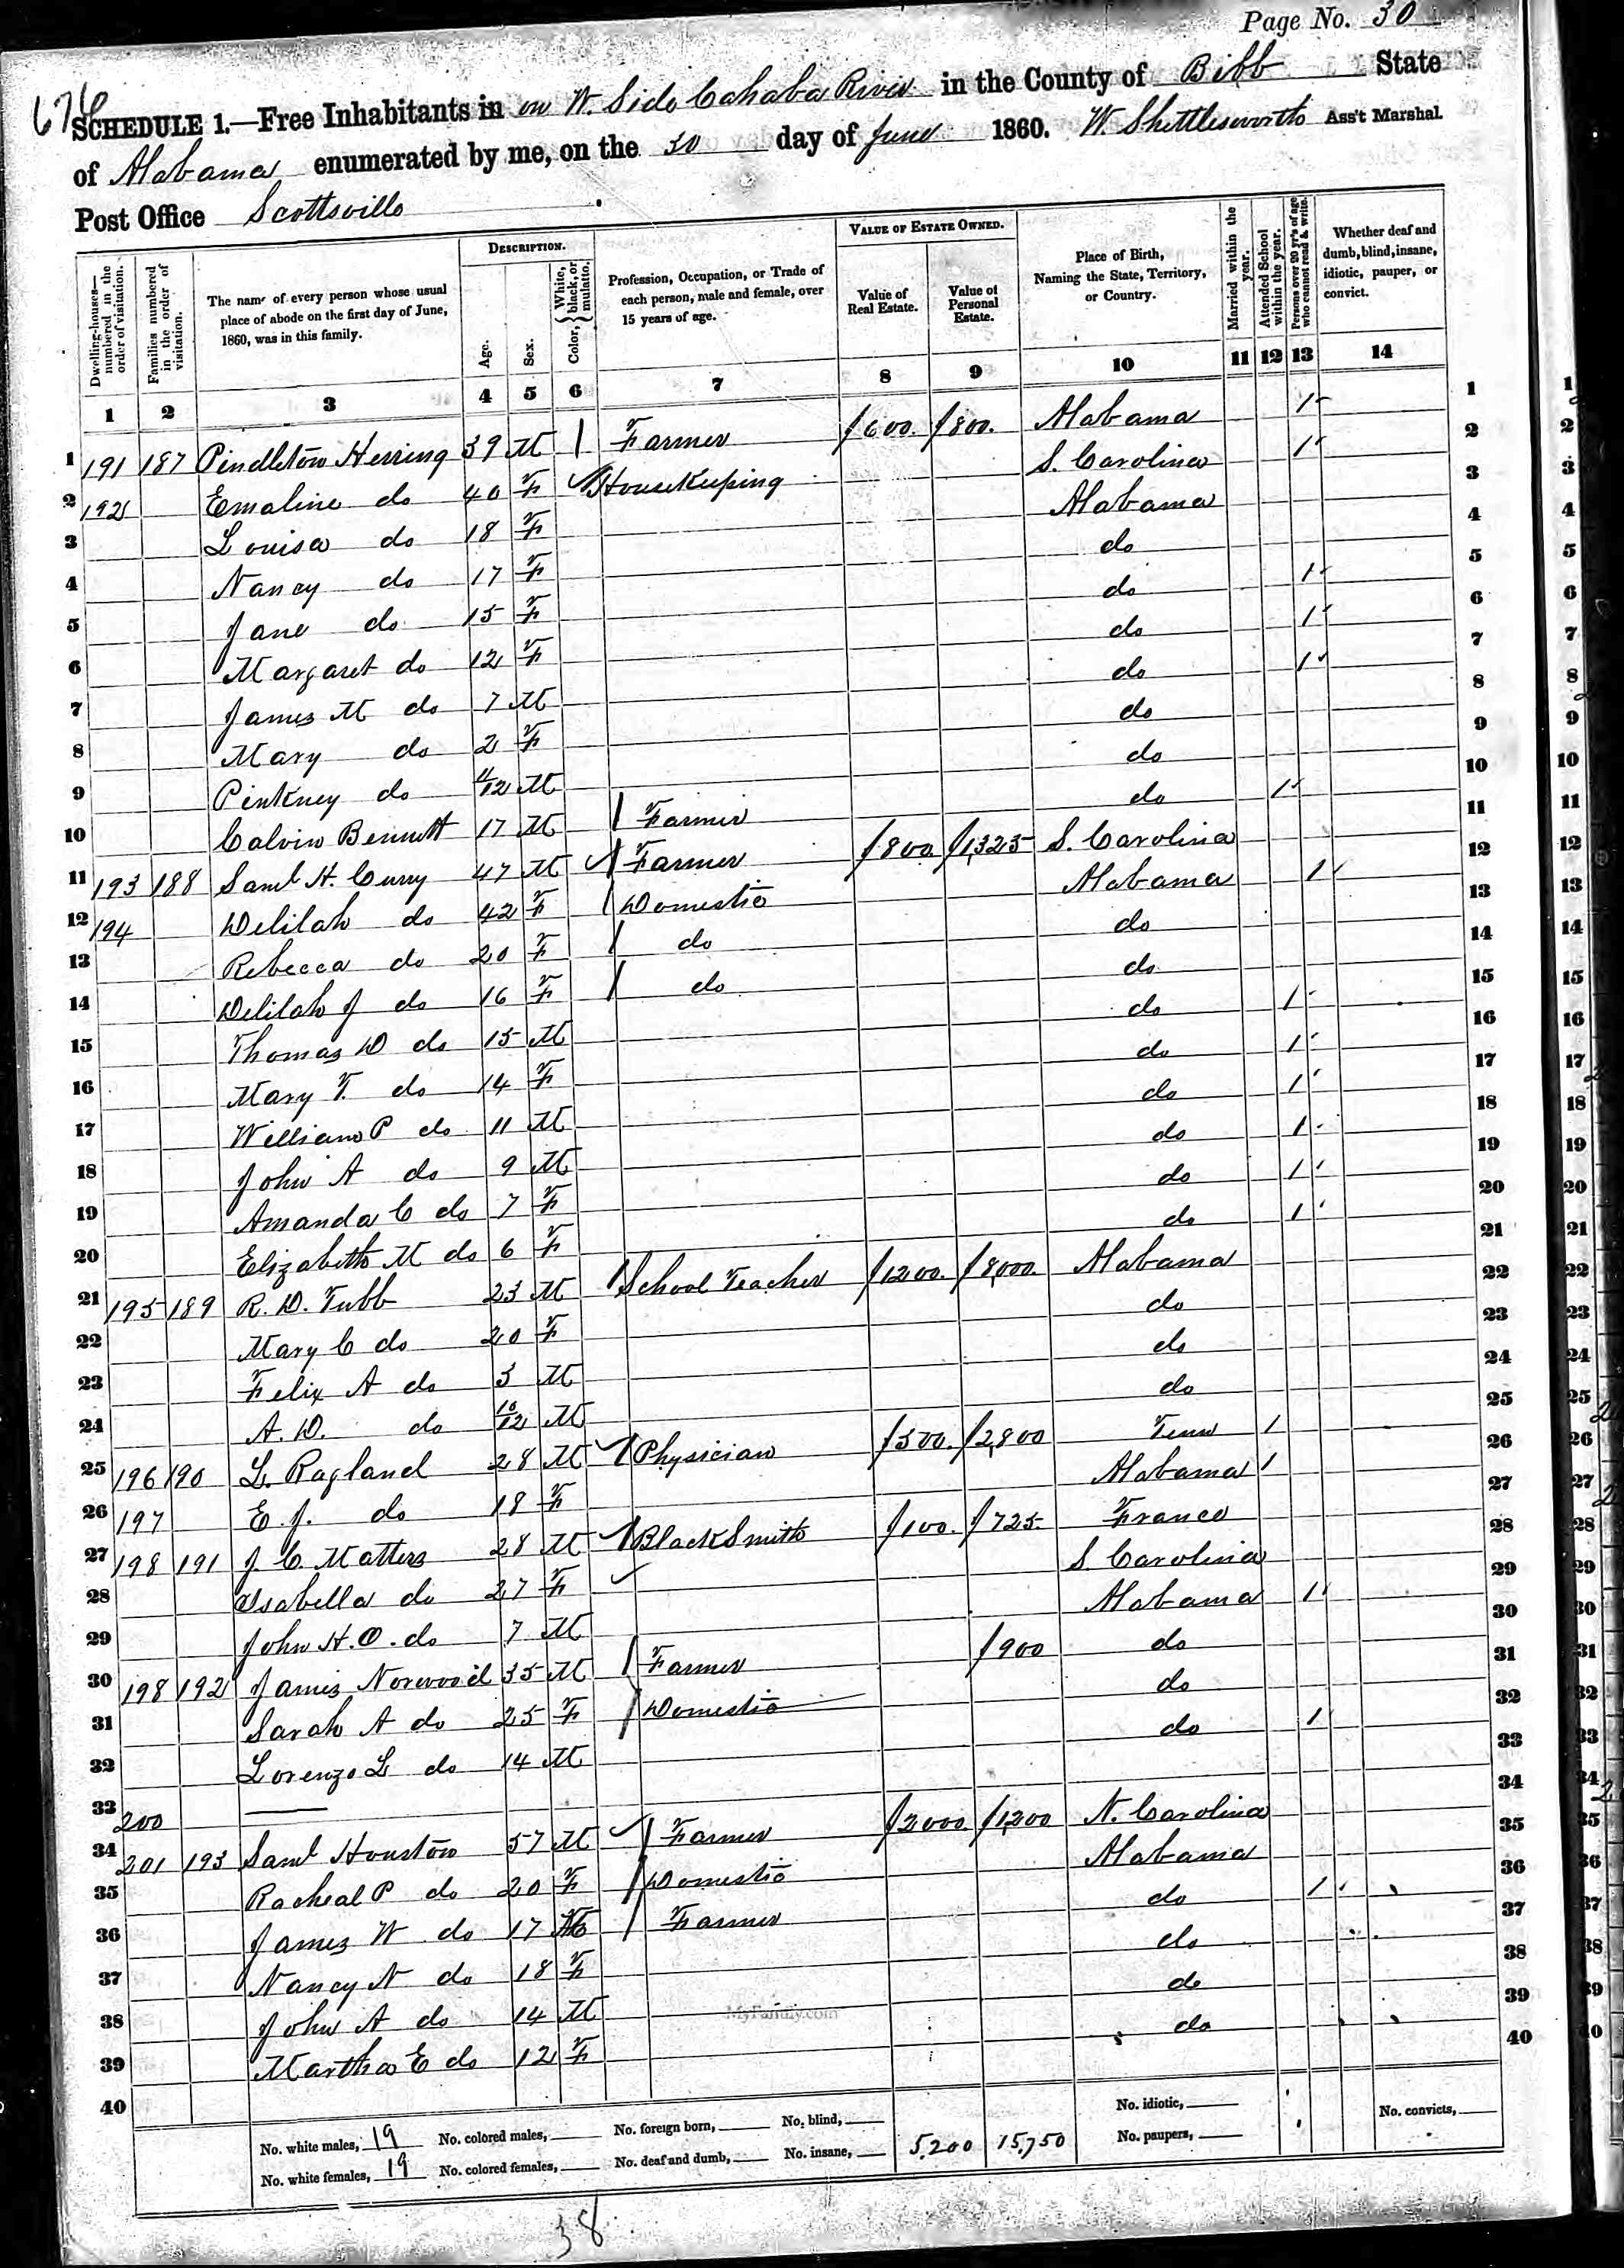 Page No. 30
676
SCHEDULE 1.—Free Inhabitants in on W. Side Cahaba River in the County of Bibb State
of Alabama enumerated by me, on the 30 day of June 1860. W. Shettlesworth Ass't Marshal.
Post Office Scottsville
Dwelling-houses—numbered in the order of visitation. Families numbered in the order of visitation. The name of every person whose usual place of abode on the first day of June, 1860, was in this family. DESCRIPTION. Age. Sex. Color, White, black, or mulatto. Profession, Occupation, or Trade of each person, male and female, over 15 years of age. VALUE OF ESTATE OWNED. Value of Real Estate. Value of Personal Estate. Place of Birth, Naming the State, Territory, or Country. Married within the year. Attended School within the year. Persons over 20 yr's of age who cannot read & write. Whether deaf and dumb, blind, insane, idiotic, pauper, or convict.
1 2 3 4 5 6 7 8 9 10 11 12 13 14
1 191 187 Pindleton Herring 39 M / Farmer /600. /800. Alabama 1 1
2 192 Emaline do 40 F Housekeeping S. Carolina 1 2
3 Louisa do 18 F Alabama 3
4 Nancy do 17 F do 4
5 Jane do 15 F do 1 5
6 Margaret do 12 F do 1 6
7 James M do 7 M do 1 7
8 Mary do 2 F do 8
9 Pinkney do 4/12 M do 9
10 Calvin Bennett 17 M / Farmer do 1 10
11 193 188 Saml H. Curry 47 M / Farmer /800. /1,325 S. Carolina 11
12 194 Delilah do 42 F / Domestic Alabama 1 12
13 Rebecca do 20 F / do do 13
14 Delilah J do 16 F / do do 14
15 Thomas D do 15 M do 1 15
16 Mary F. do 14 F do 1 16
17 William P do 11 M do 1 17
18 John A do 9 M do 1 18
19 Amanda C do 7 F do 1 19
20 Elizabeth M do 6 F do 1 20
21 195 189 R. D. Tubb 23 M / School Teacher /1200. /8,000. Alabama 21
22 Mary C do 20 F do 22
23 Felix A do 3 M do 23
24 A. D. do 10/12 M do 24
25 196 190 L. Ragland 28 M / Physician /500. /2,800 Tenn 1 25
26 197 E. J. do 18 F Alabama 1 26
27 198 191 J. C. Matters 28 M / BlackSmith /100. /725. France 27
28 Isabella do 27 F S. Carolina 28
29 John H. O. do 7 M Alabama 1 29
30 198 192 James Norwood 35 M / Farmer /900 do 30
31 Sarah A do 25 F / Domestic do 31
32 Lorenzo L do 14 M do 1 32
33 200 33
34 201 193 Saml Houston 57 M / Farmer /2000. /1,200 N. Carolina 34
35 Racheal P do 20 F / Domestic Alabama 35
36 James W do 17 M / Farmer do 1 36
37 Nancy N do 18 F do 37
38 John A do 14 M do 38
39 Martha E do 12 F do 39
40 40
MyFamily.com
No. white males, 19 No. colored males, No. foreign born, No. blind, No. idiotic, No. convicts,
No. white females, 19 No. colored females, No. deaf and dumb, No. insane, 5,200 15,750 No. paupers,
38